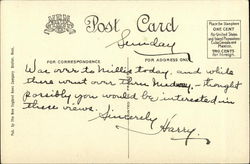 Post Card
Sunday
FOR CORRESPONDENCE
FOR ADDRESS ONLY
Place the Stamp here
ONE CENT
For United States
and Island Possessions
Cuba, Canada and
Mexico
TWO CENTS
For Foreign
Was over to Millis today, and while
there went over thru – thought
possibly you would be interested in
these views.
Sincerely
Harry.
Pub. by The New England News Company, Boston, Mass.